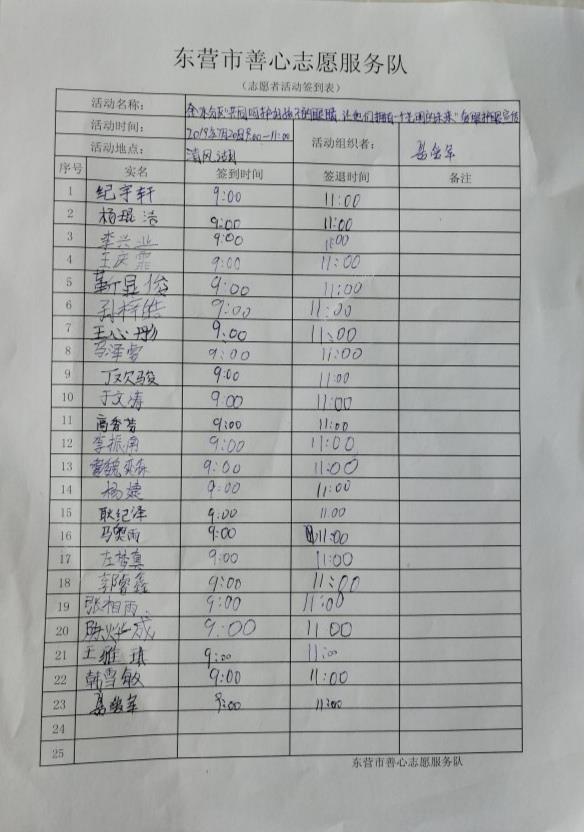 东营市善心志愿服务队
（志愿者活动签到表）
活动名称： 共同呵护孩子的眼睛，让他们拥有一个光明的未来"
活动时间： 2019年7月20日9:00-11:00 活动组织者：
活动地点： 清风湖
序号 实名 签到时间 签退时间 备注
1 纪宇轩 9:00 11:00
2 杨琨浩 9:00 11:00
3 李兴业 9:00 11:00
4 王庆霖 9:00 11:00
5 靳显俊 9:00 11:00
6 孙梓皓 9:00 11:00
7 王心彤 9:00 11:00
8 马泽雷 9:00 11:00
9 丁欢骏 9:00 11:00
10 于文涛 9:00 11:00
11 商香芳 9:00 11:00
12 李振甫 9:00 11:00
13 奕森 9:00 11:00
14 杨婕 9:00 11:00
15 耿纪泽 9:00 11:00
16 马奥雨 9:00 11:00
17 左梦真 9:00 11:00
18 郭睿鑫 9:00 11:00
19 张相雨 9:00 11:00
20 陈 成 9:00 11 00
21 王雅琪 9:00 11:00
22 韩雪敏 9:00 11:00
23 9:00 11:00
24
25
东营市善心志愿服务队